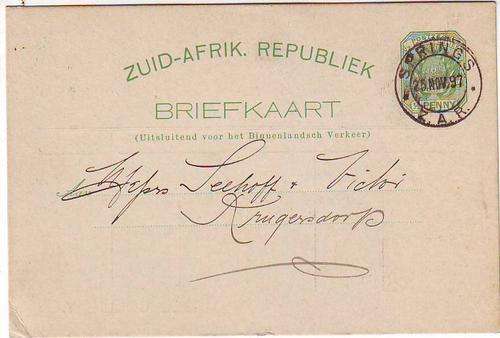 ZUID-AFRIK. REPUBLIEK
SPRINGS
25.NOV.97
Z.A.R.
PENNY
BRIEFKAART
(Uitsluitend voor het Binnenlandsch Verkeer)
Messrs Seehoff & Victor
Krugersdorp